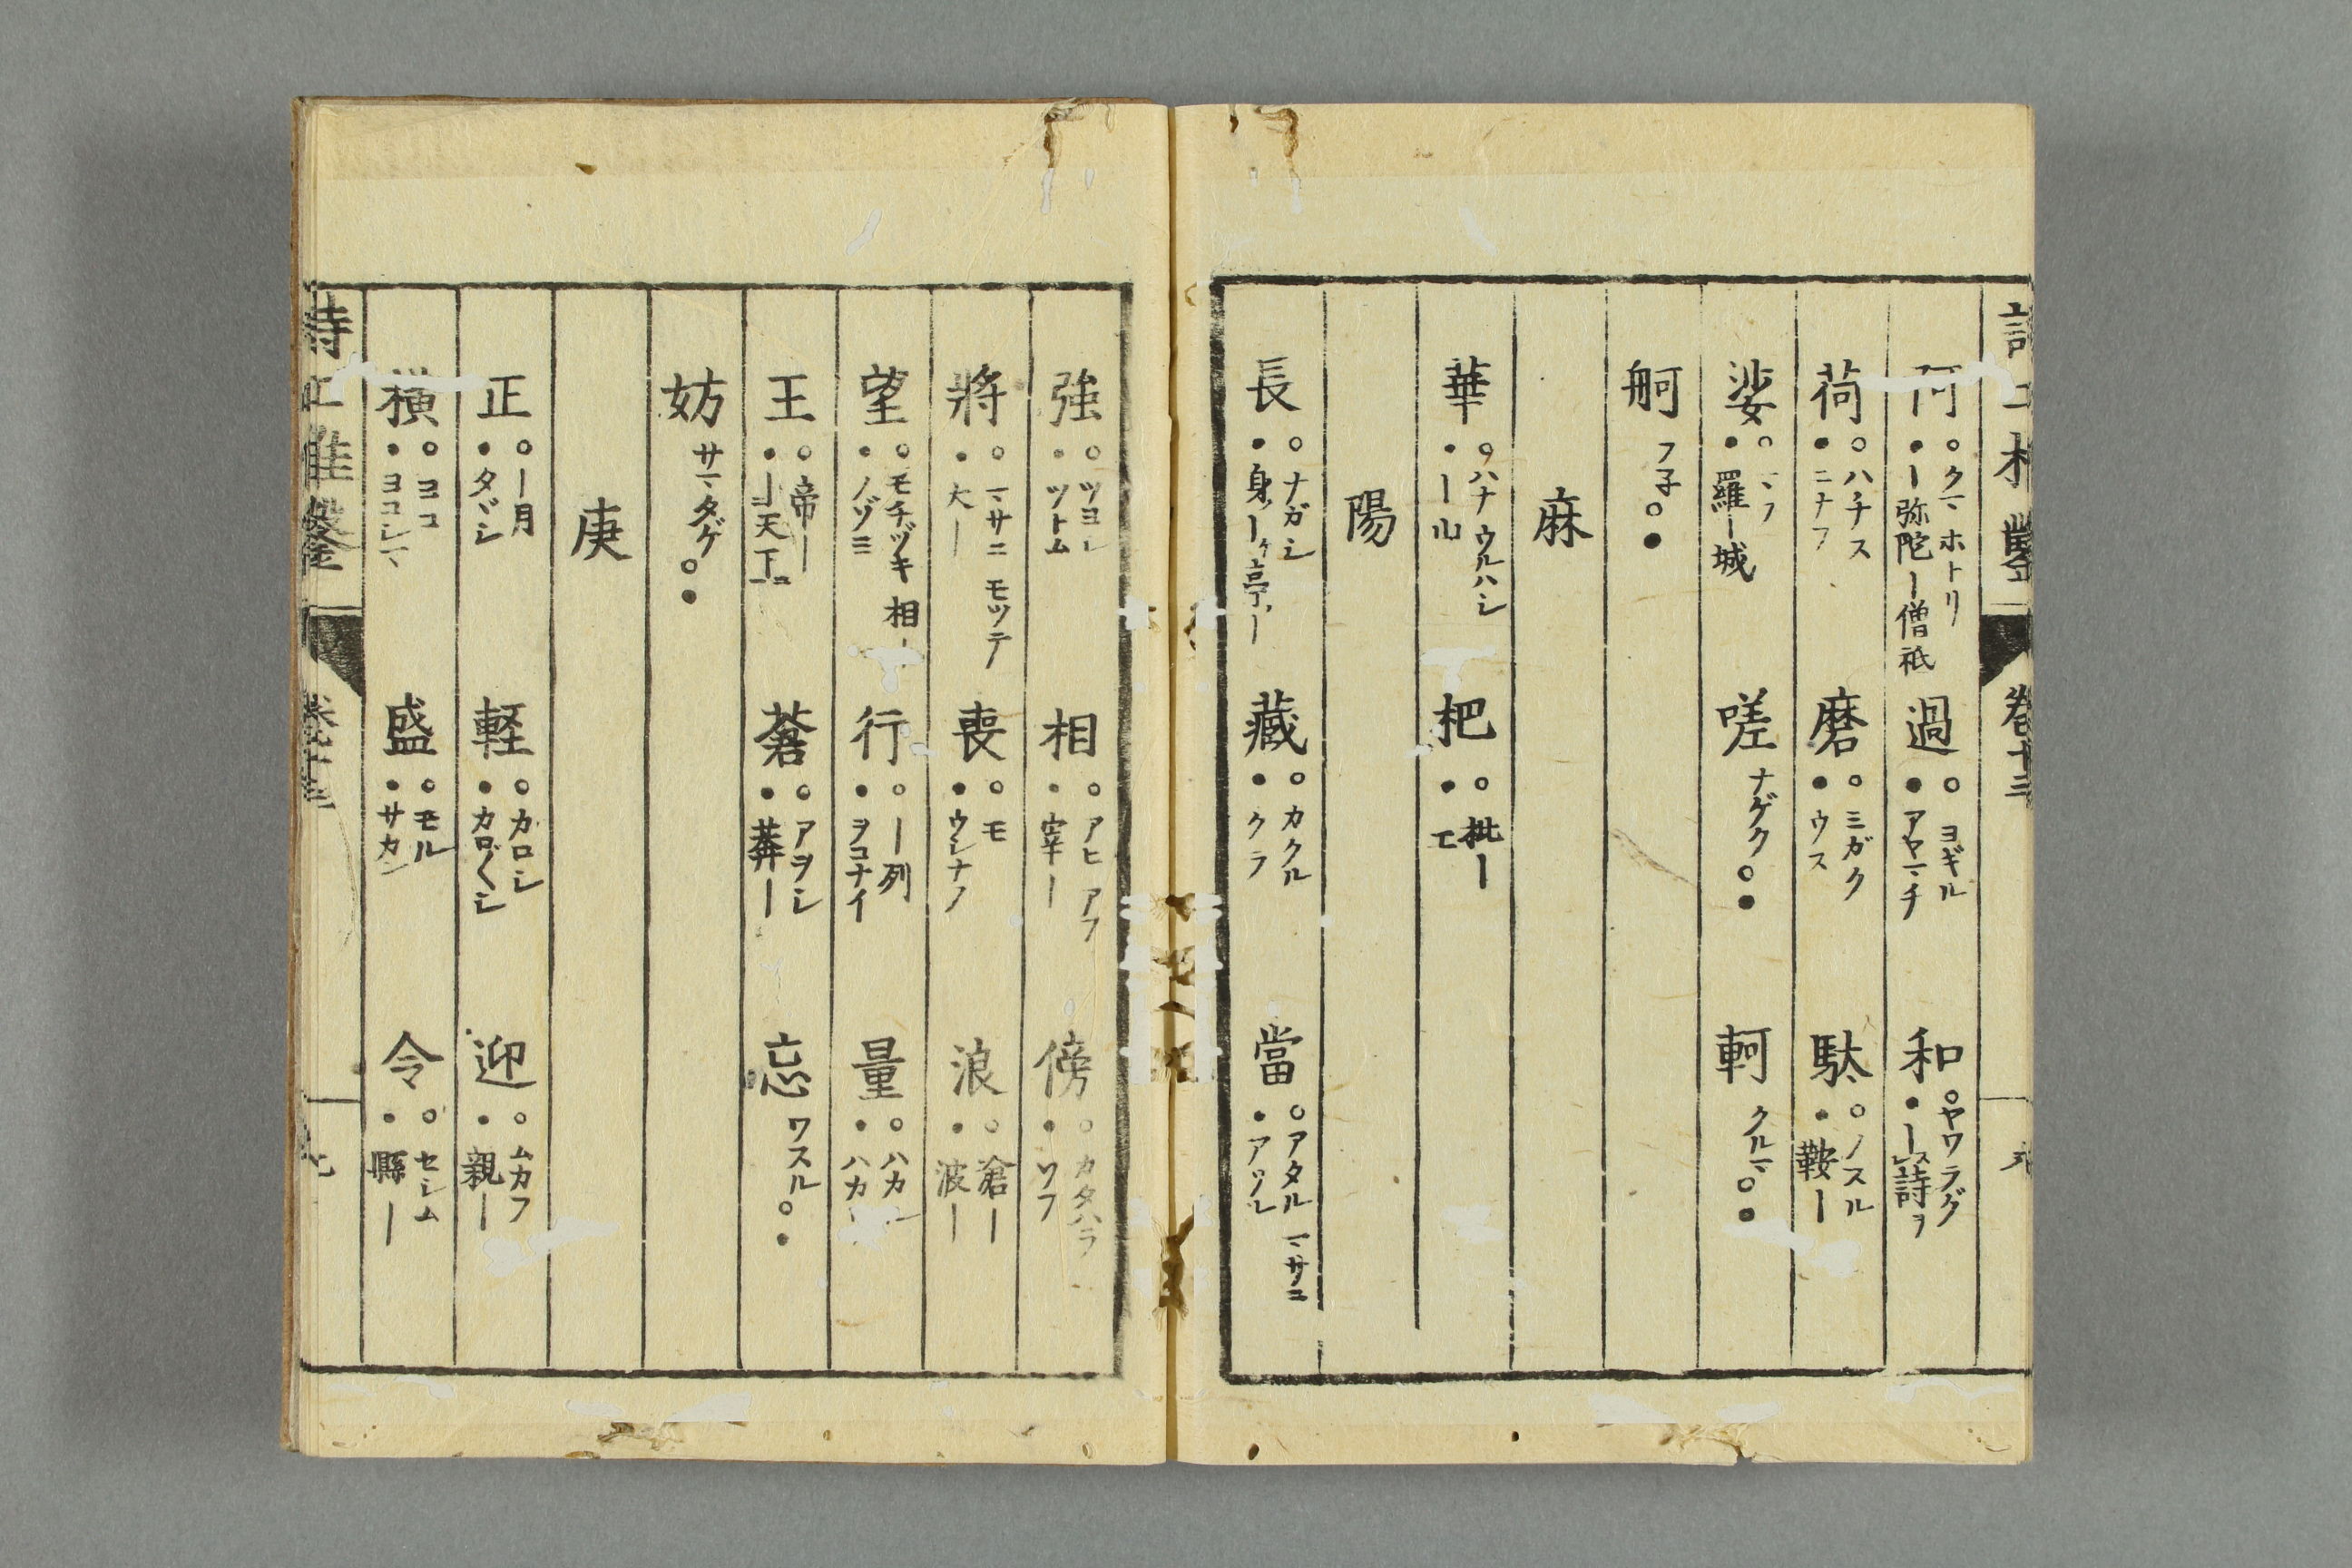 卷十三
阿 ○クマ ホトリ ●ー弥陀ー僧祇 過 ○ヨギル ●アヤマチ 和 ○ヤワラグ ●ースレ詩ヲ
荷 ○ハチス ●ニナフ 磨 ○ミガク ●ウス 駄 ○ノスル ●鞍ー
娑 ○マフ ●羅ー城 嗟 ナゲク○● 軻 クルマ○●
舸 フ子○●
麻
華 ○ハナ ウルハシ ●ー山 杷 ○枇ー ●エ
陽
長 ○ナガシ ●身ーケ亭ー 藏 ○カクル ●クラ 當 ○アタル マサニ ●アツル
強 ○ツヨシ ●ツトム 相 ○アヒ アフ ●宰ー 傍 ○カタハラ ●ソフ
將 ○マサニ モツテ ●大ー 喪 ○モ ●ウシナフ 浪 ○滄ー ●波ー
望 ○モチヅキ 相ー ●ノゾミ 行 ○ー列 ●ヲコナイ 量 ○ハカル ●ハカリ
王 ○帝ー ●ー天下ニ 蒼 ○アヲシ ●莽ー 忘 ワスル○●
妨 サマタゲ○●
庚
正 ○ー月 ●タヾシ 軽 ○カロシ ●カロ〴〵シ 迎 ○ムカフ ●親ー
横 ○ヨコ ●ヨコシマ 盛 ○モル ●サカン 令 ○セシム ●縣ー